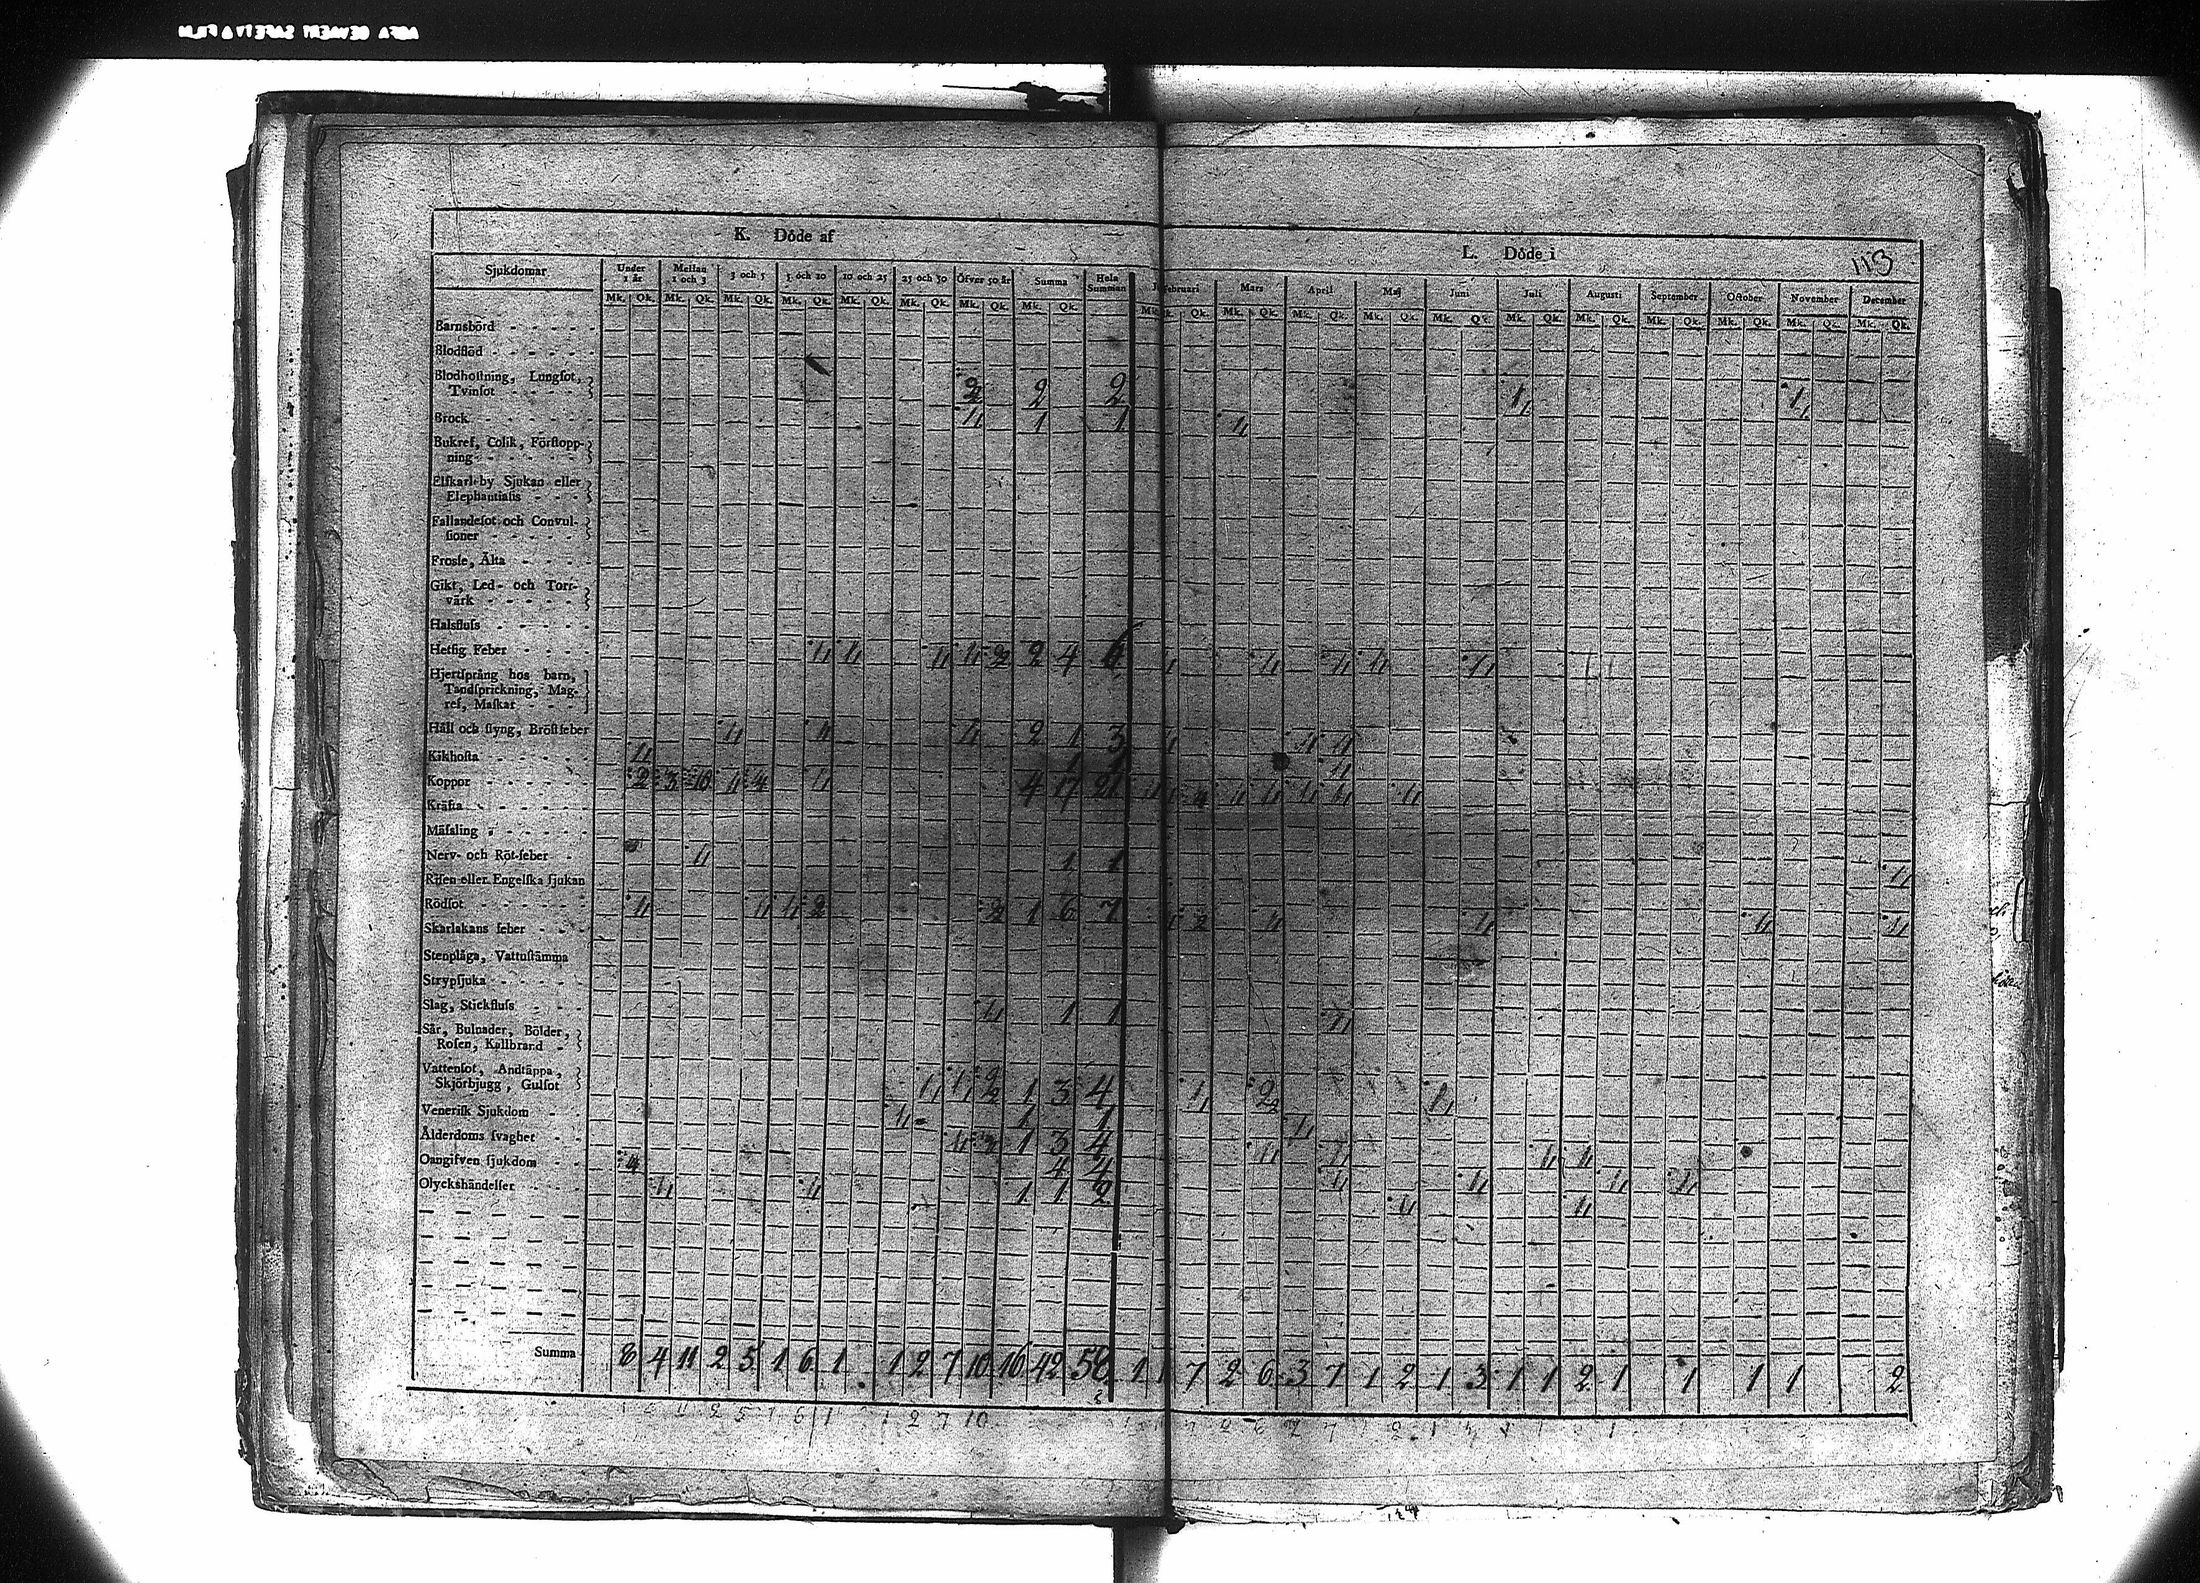 K. Döde af
L. Döde i
113
Sjukdomar
Under 1 år
Mellan 1 och 3
3 och 5
5 och 10
10 och 25
25 och 50
Öfver 50 år
Summa
Hela Summan
Februari
Mars
April
Maj
Juni
Juli
Augusti
September
October
November
December
Mk. Qk. Mk. Qk. Mk. Qk. Mk. Qk. Mk. Qk. Mk. Qk. Mk. Qk. Mk. Qk.
Qk. Mk. Qk. Mk. Qk. Mk. Qk. Mk. Qk. Mk. Qk. Mk. Qk. Mk. Qk. Mk. Qk. Mk. Qk. Mk. Qk.
Barnsbörd
Blodflöd
Blodhostning, Lungsot,
Tvinsot 2 2 2 1 1
Brock 1 1 1 1
Bukref, Colik, Förstopp-
ning
Elfkarleby Sjukan eller
Elephantiasis
Fallandesot och Convul-
sioner
Frossa, Älta
Gikt, Led- och Torr-
värk
Halsfluss
Hetsig Feber 1 1 1 1 2 2 4 6 1 1 1 1 1
Hjertsprång hos barn,
Tandsprickning, Mag-
ref, Maskar
Håll och styng, Bröstfeber 1 1 1 2 1 3 1 1 1
Kikhosta 1 1 1 1
Koppor 2 3 10 1 4 1 4 17 21 1 1 4 1 1 1 1 1
Kräfta
Mässling
Nerv- och Röt-feber 1 1 1 1
Risen eller Engelska sjukan
Rödsot 1 1 1 2 2 1 6 7 1 2 1 1 1 1
Skarlakans feber
Stenplåga, Vattustämma
Strypsjuka
Slag, Stickfluss 1 1 1 1
Sår, Bulnader, Bölder,
Rosen, Kallbrand
Vattensot, Andtäppa,
Skjörbjugg, Gulsot 1 1 2 1 3 4 1 2 1
Venerisk Sjukdom 1 1 1 1
Ålderdoms svaghet 1 3 1 3 4 1 1 1 1
Oangifven sjukdom 4 4 4 1 1 1 1
Olyckshändelser 1 1 1 1 2 1 1
Summa 8 4 11 2 5 1 6 1 1 2 7 10 16 42 58 1 1 7 2 6 3 7 1 2 1 3 1 1 2 1 1 1 1 2